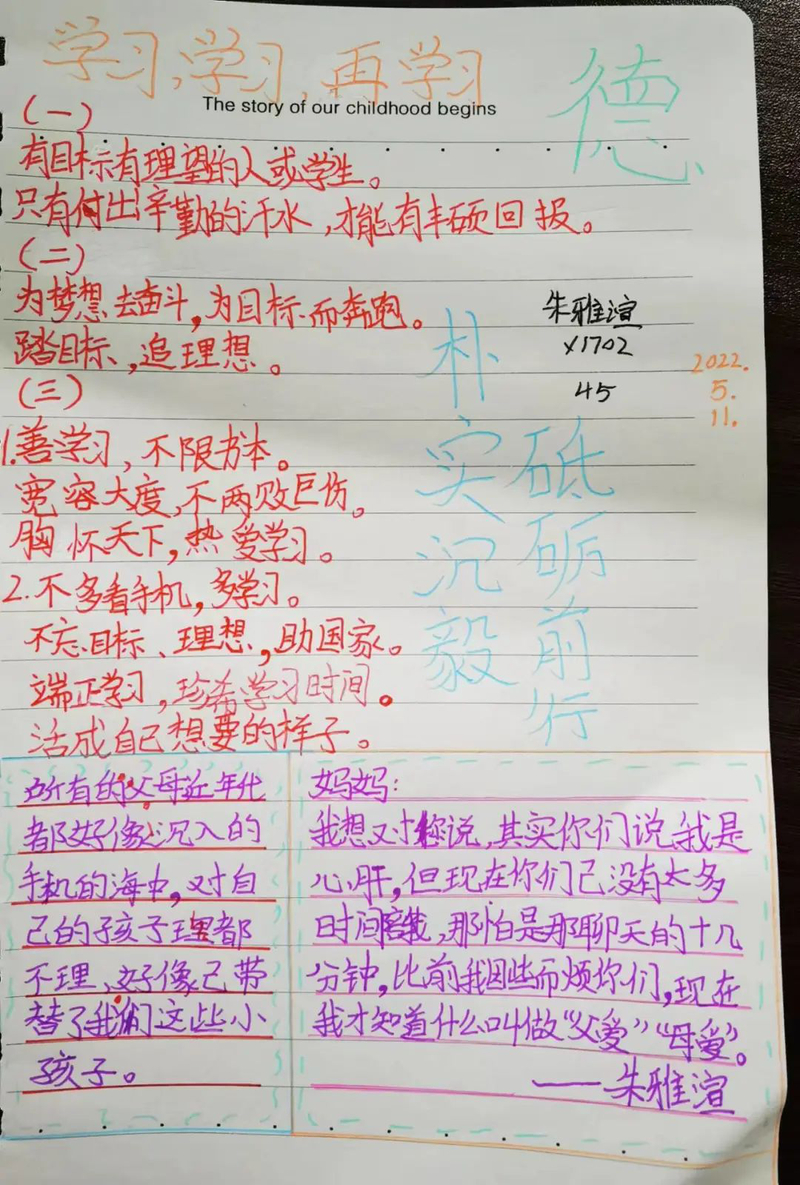 学习,学习,再学习
The story of our childhood begins
德
(一)
有目标有理望的人或学生。
只有付出辛勤的汗水,才能有丰硕回报。
(二)
为梦想去奋斗,为目标而奔跑。
踏目标,追理想。
(三)
1.善学习,不限书本。
宽容大度,不两败巨伤。
胸怀天下,热爱学习。
2.不多看手机,多学习。
不忘目标、理想,助国家。
端正学习,珍希学习时间。
活成自己想要的样子。
朱雅渲
x1702
45
2022.
5.
11.
朴实沉毅
砥砺前行
所有的父母近年代
都好像沉入的
手机的海中,对自
己的孩子理都
不理、好像已带
替了我们这些小
孩子。
妈妈:
我想对您说,其实你们说我是
心肝,但现在你们已没有太多
时间陪我,那怕是那聊天的十几
分钟,比前我因些而烦你们,现在
我才知道什么叫做“父爱”“母爱”。
——朱雅渲